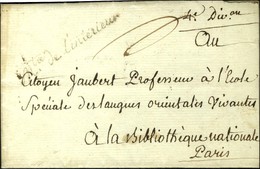 4e Div.on
de l'intérieur
Au
Citoyen Jaubert Professeur à l'Ecole
Spéciale des langues orientales Vivantes
À la Bibliothèque nationale
Paris